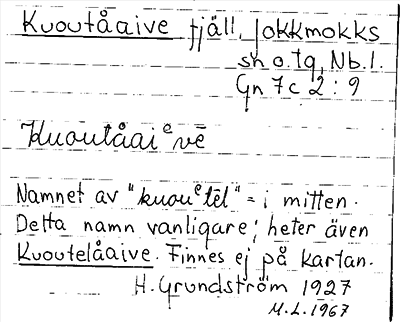 Kuoutåaive fjäll, Jokkmokks
sn o. tg, Nb. l.
Gn 7c 2 : 9
Kuoutåaiᵉvē
Namnet av "kuouᵉtēl" = i mitten.
Detta namn vanligare; heter även
Kuoutelåaive. Finnes ej på kartan.
H. Grundström 1927
M.L. 1967